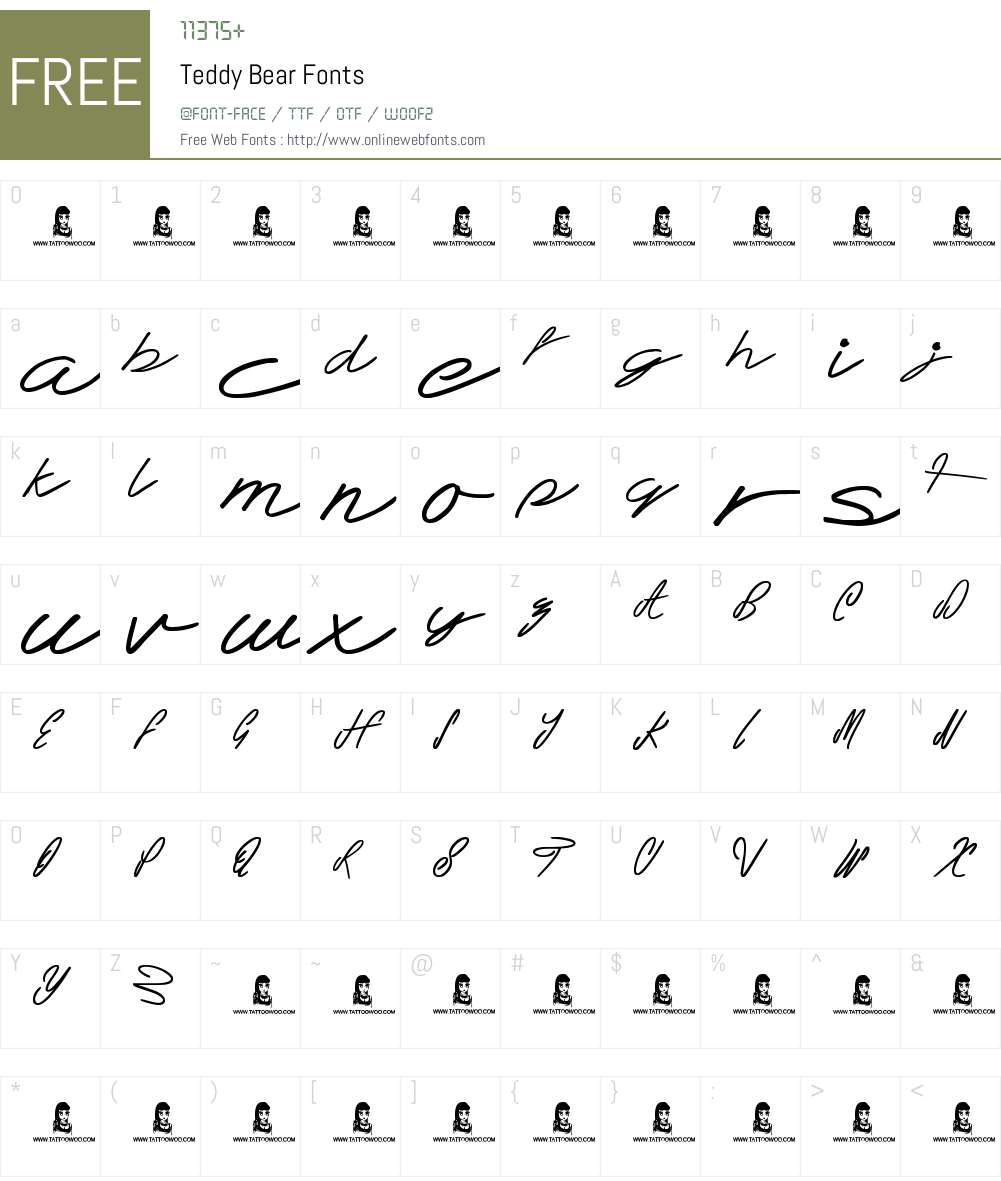 FREE
11375+
Teddy Bear Fonts
@FONT-FACE / TTF / OTF / WOOF2
Free Web Fonts : http://www.onlinewebfonts.com
0 1 2 3 4 5 6 7 8 9
WWW.TATTOOWOO.COM WWW.TATTOOWOO.COM WWW.TATTOOWOO.COM WWW.TATTOOWOO.COM WWW.TATTOOWOO.COM WWW.TATTOOWOO.COM WWW.TATTOOWOO.COM WWW.TATTOOWOO.COM WWW.TATTOOWOO.COM WWW.TATTOOWOO.COM
a b c d e f g h i j
a b c d e f g h i j
k l m n o p q r s t
k l m n o p q r s t
u v w x y z A B C D
u v w x y z A B C D
E F G H I J K L M N
E F G H I J K L M N
O P Q R S T U V W X
O P Q R S T U V W X
Y Z ~ ~ @ # $ % ^ &
Y Z WWW.TATTOOWOO.COM WWW.TATTOOWOO.COM WWW.TATTOOWOO.COM WWW.TATTOOWOO.COM WWW.TATTOOWOO.COM WWW.TATTOOWOO.COM WWW.TATTOOWOO.COM WWW.TATTOOWOO.COM
* ( ) [ ] { } : > <
WWW.TATTOOWOO.COM WWW.TATTOOWOO.COM WWW.TATTOOWOO.COM WWW.TATTOOWOO.COM WWW.TATTOOWOO.COM WWW.TATTOOWOO.COM WWW.TATTOOWOO.COM WWW.TATTOOWOO.COM WWW.TATTOOWOO.COM WWW.TATTOOWOO.COM